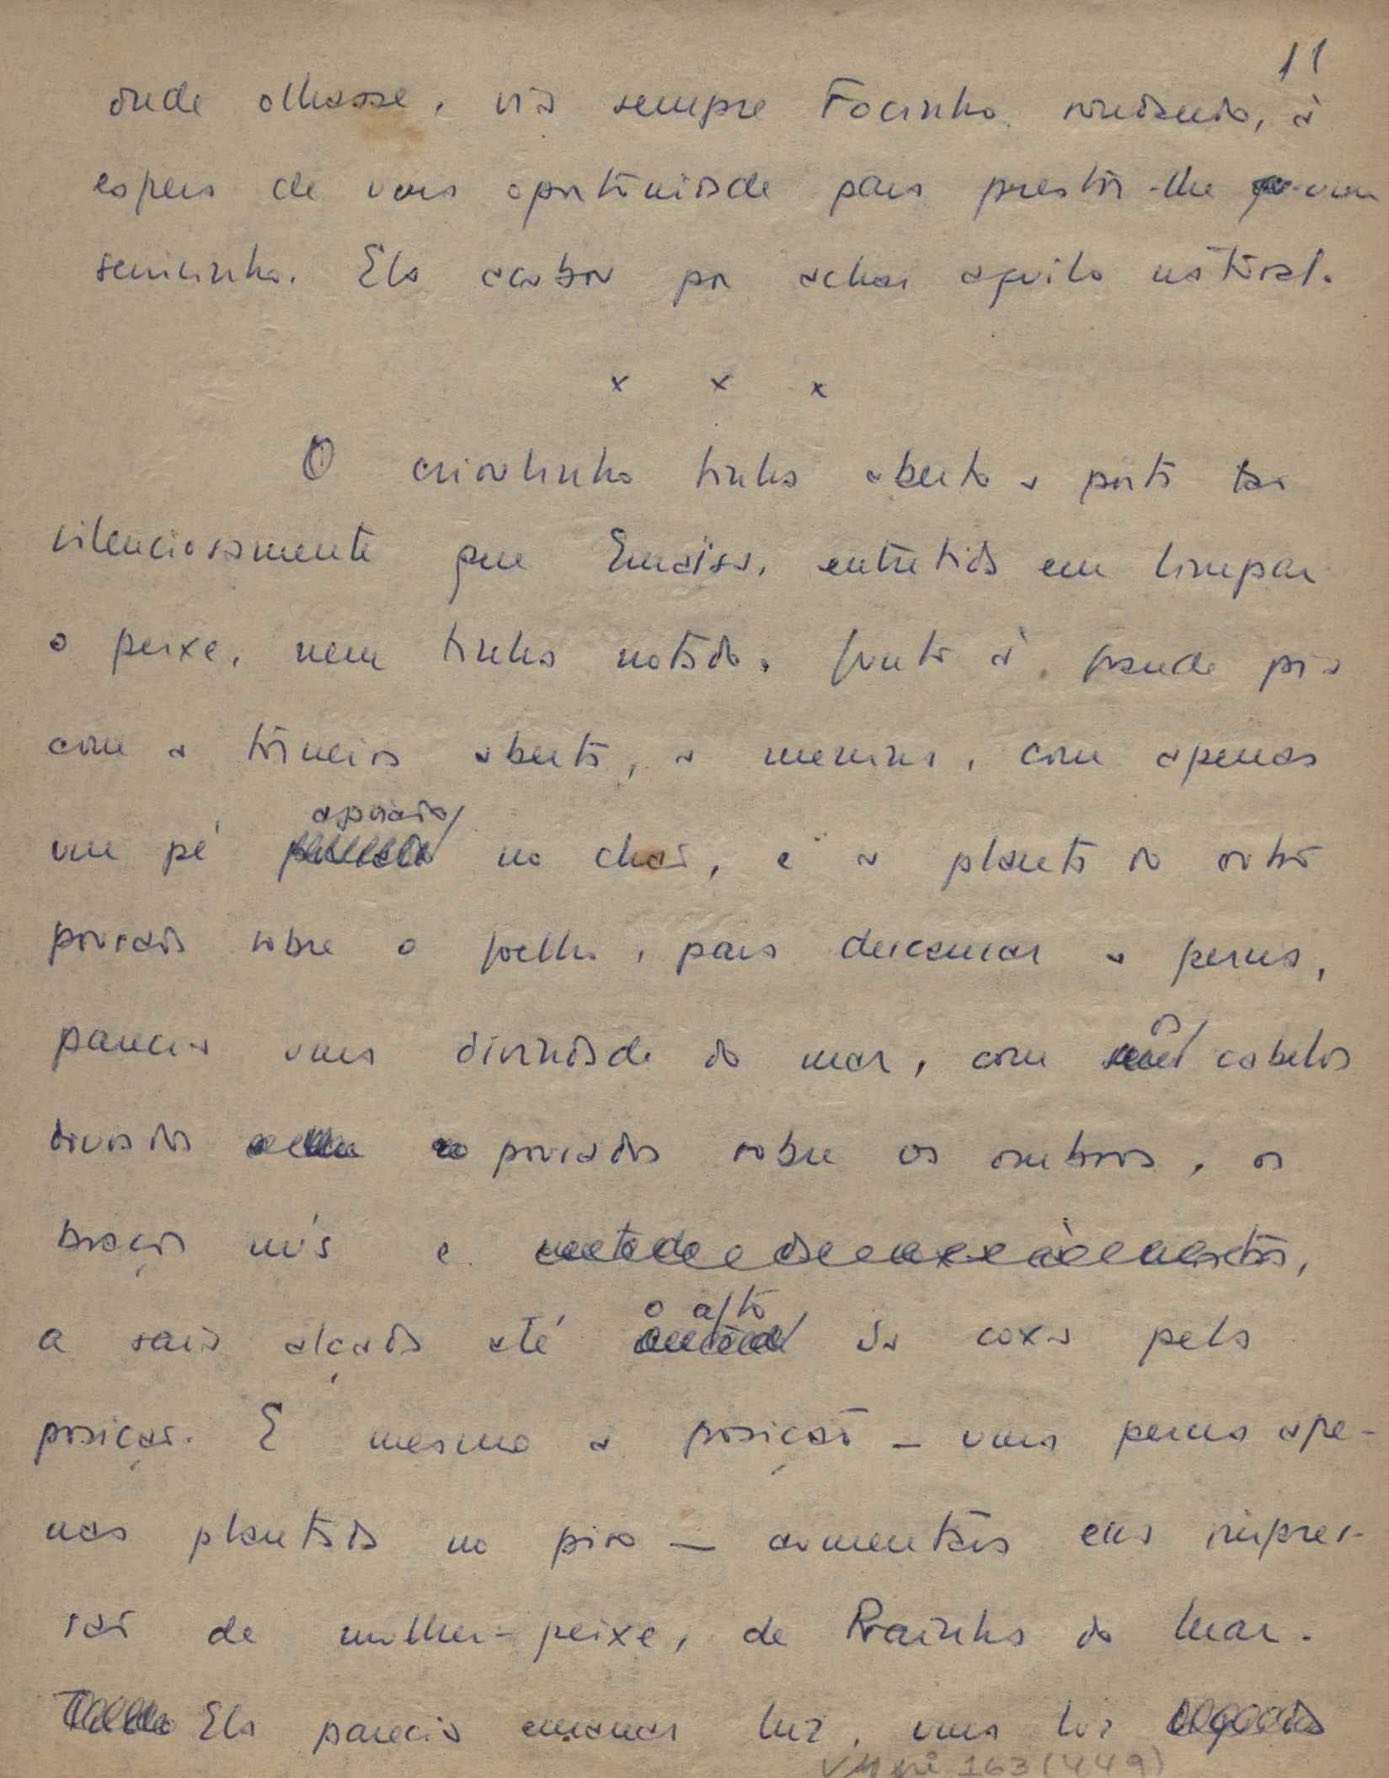 11
onde olhasse, via sempre Focinho rondando, à
espera de uma oportunidade para prestar-lhe um
servicinho. Ela acabou por achar aquilo natural.
x x x
O crioulinho tinha aberto a porta tão
silenciosamente que, entretida em limpar
o peixe, nem tinha notado. Junto à grande pia
com a torneira aberta, a menina, com apenas
apoiado
um pé no chão, e a planta do outro
pousada sobre o joelho, para descansar a perna,
os
parecia uma divindade do mar, com cabelos
divididos pousados sobre os ombros, os
braços nús e
o alto
a saia alçada até da coxa pela
posição. E mesmo a posição — uma perna ape-
nas plantada no piso — aumentava essa impres-
são de mulher-peixe, de Rainha do Mar.
Ela parecia emanar luz, uma luz
163 (449)